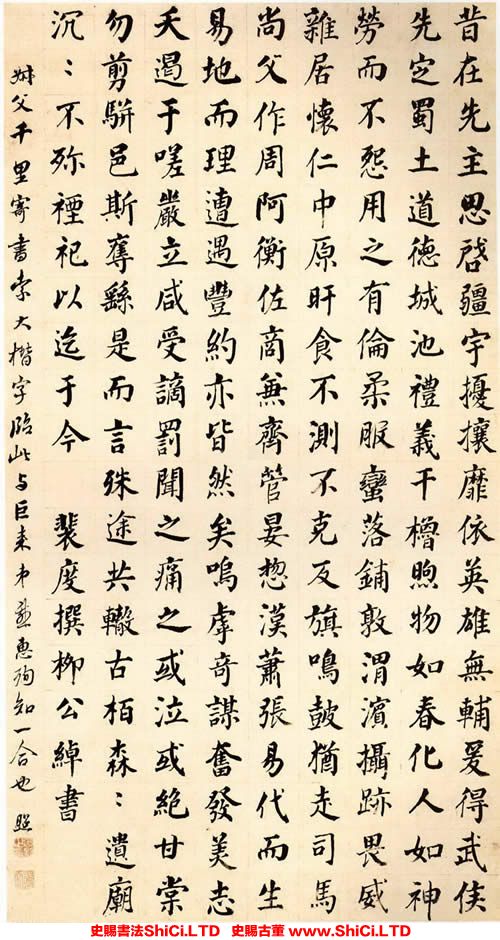 昔在先主思啓疆宇擾攘靡依英雄無輔爰得武侯
先定蜀土道德城池禮義干櫓煦物如春化人如神
勞而不怨用之有倫柔服蠻落鋪敦渭濱攝跡畏威
雜居懷仁中原旰食不測不克反旗鳴鼓猶走司馬
尚父作周阿衡佐商無齊管晏揔漢蕭張易代而生
易地而理遭遇豐約亦皆然矣嗚虖奇謀奮發美志
夭遏于嗟嚴立咸受謫罰聞之痛之或泣或絕甘棠
勿剪駢邑斯奪繇是而言殊途共轍古栢森〻遺廟
沉〻不殄禋祀以迄于今 裴度撰柳公綽書
姊父千里寄書索大楷字臨此与巨來中並惠詢知一合也 照
史賜書法ShiCi.LTD 史賜古董 www.ShiCi.LTD